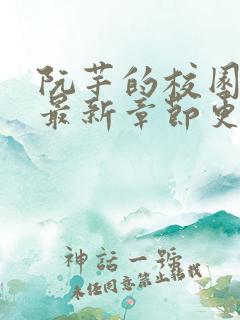 阮芋的校園
最新章節更
神話一號
未经同意禁止转载